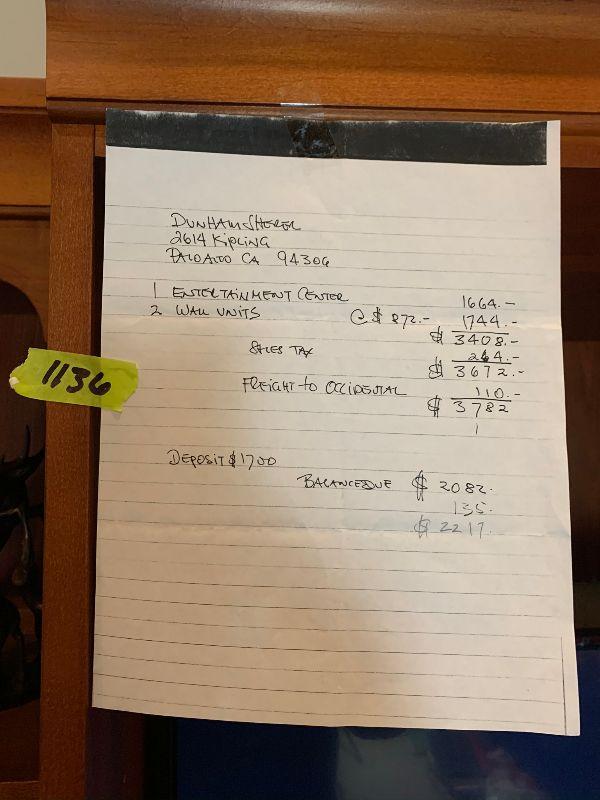 DUNHAM SHERER
2614 KIPLING
PALO ALTO CA 94306
1 ENTERTAINMENT CENTER 1664.-
2 WALL UNITS @ $ 872.- 1744.-
$ 3408.-
SALES TAX 264.-
$ 3672.-
FREIGHT to OCCIDENTAL 110.-
$ 3782
1136
DEPOSIT $ 1700
BALANCE DUE $ 2082.
135.
$ 2217.